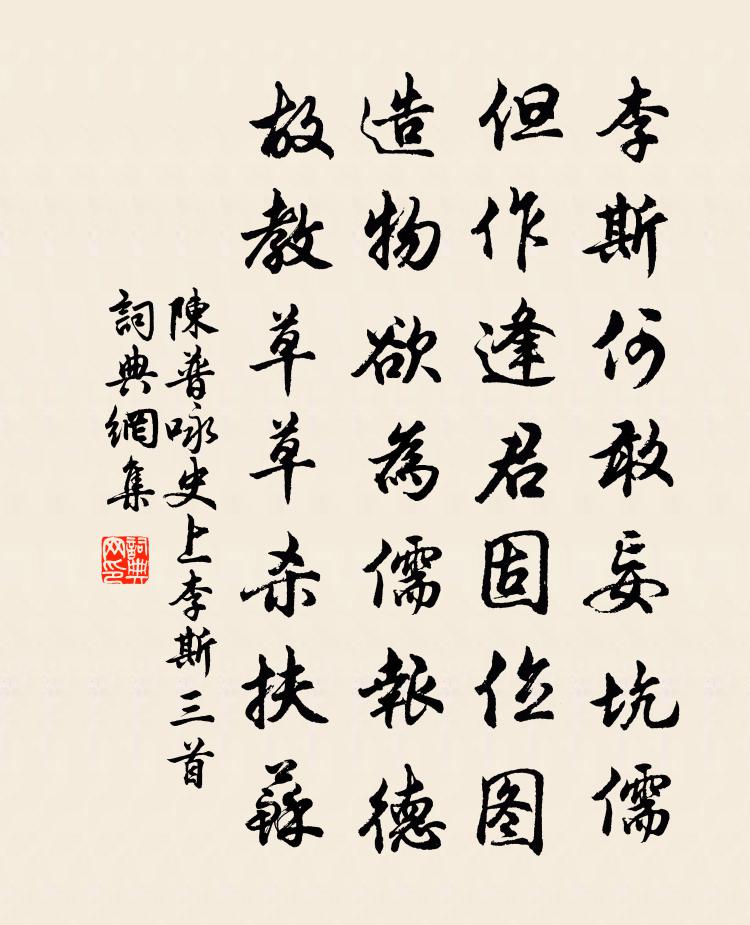 李斯何敢妄坑儒
但作逢君固位图
造物欲為儒報德
故教草草杀扶蘇
陳普咏史上李斯三首
詞典網集
詞典网印